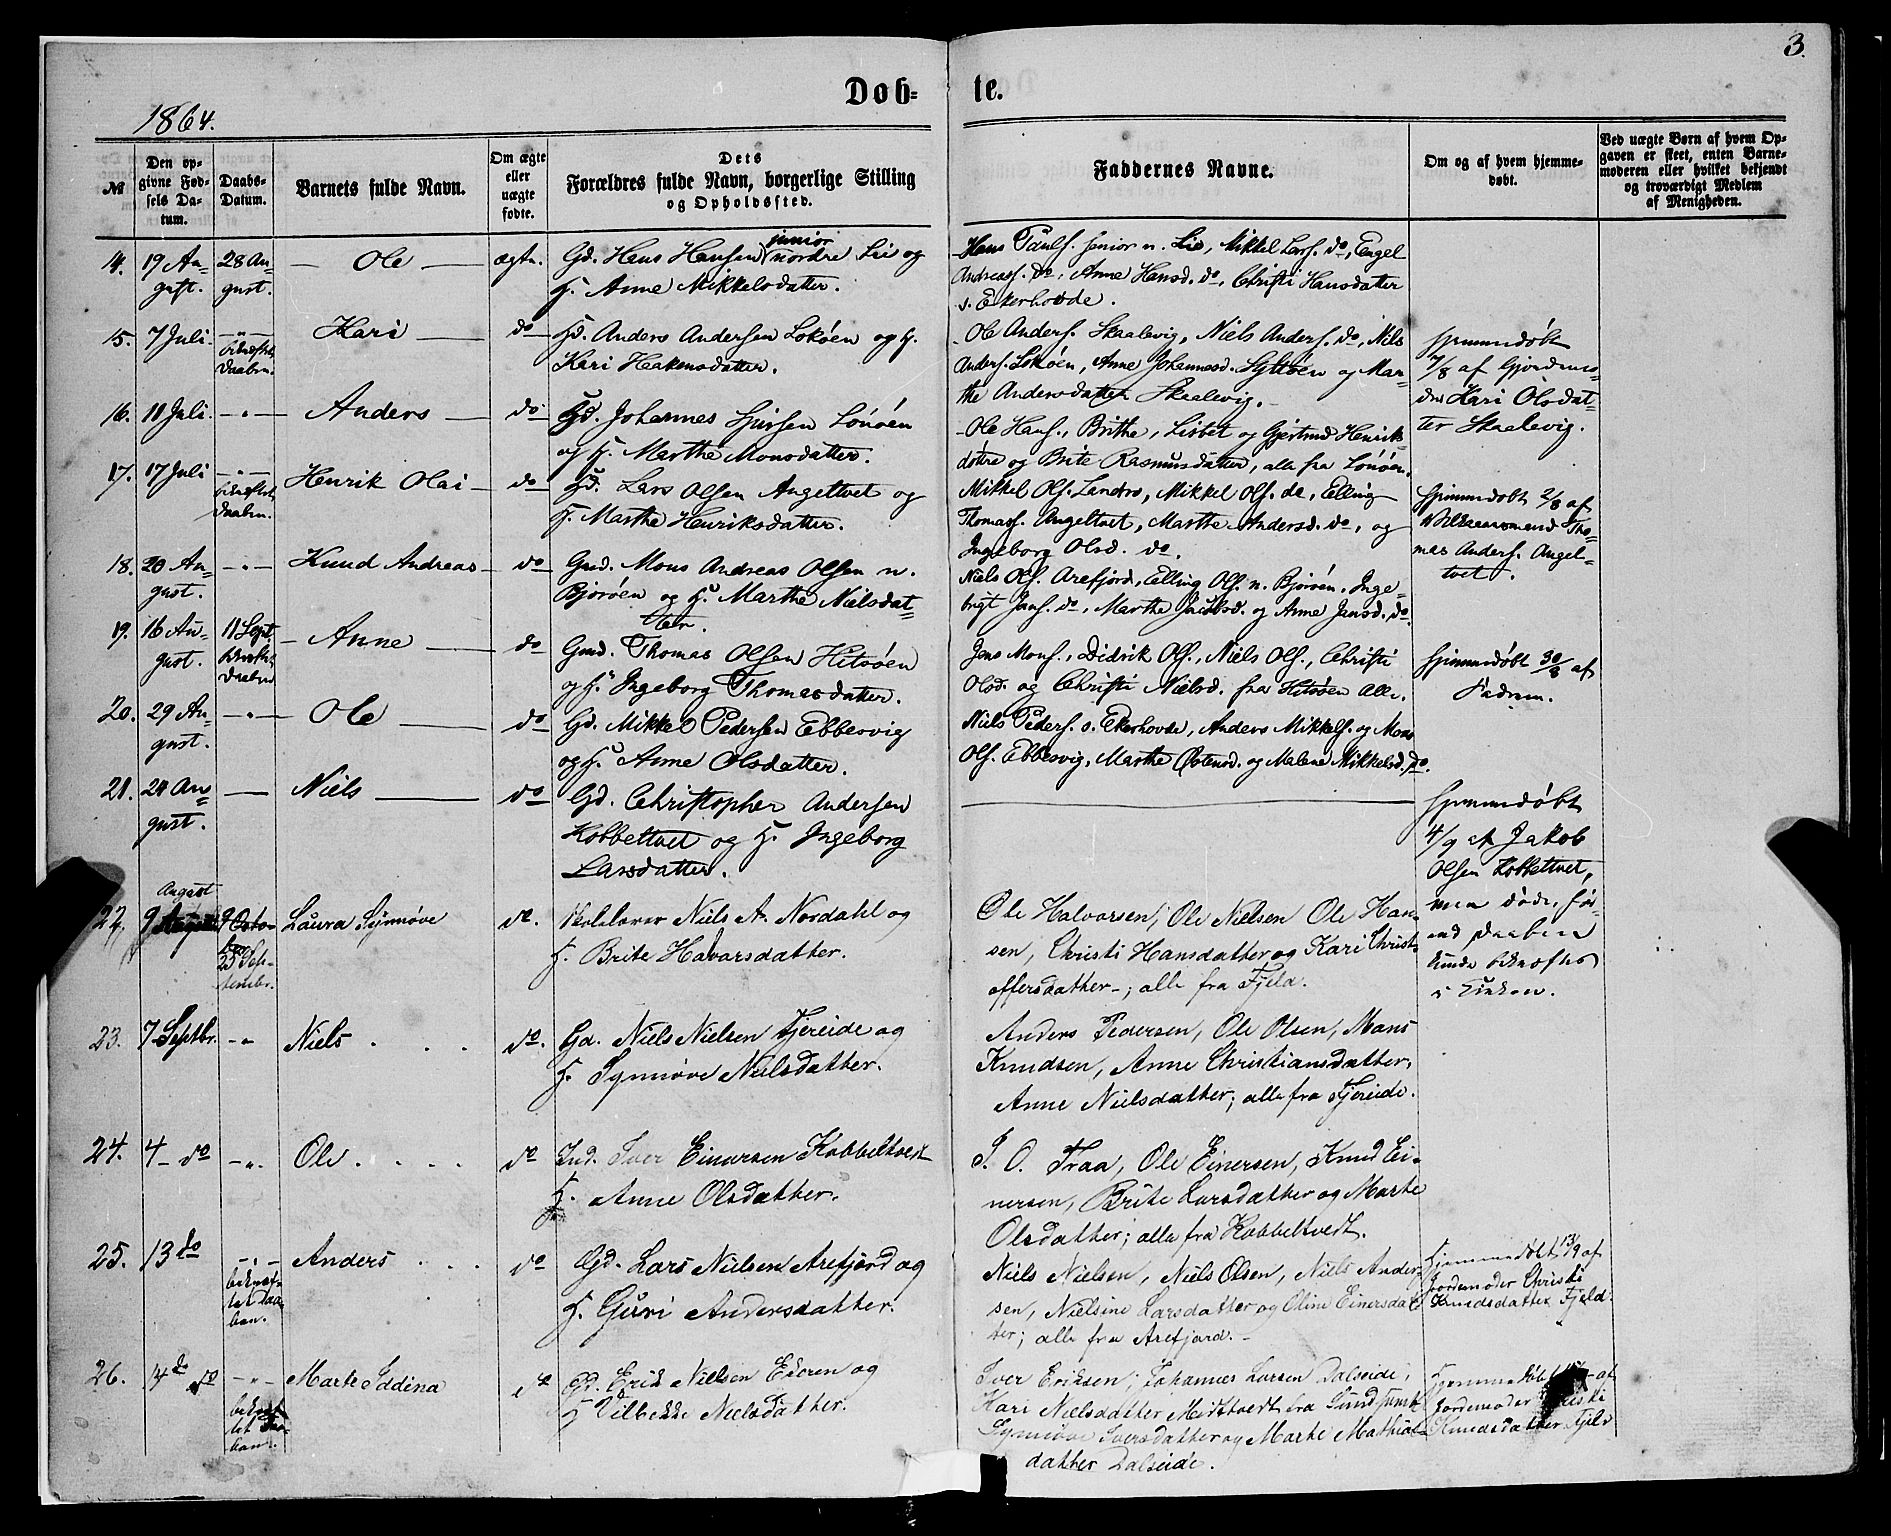 3.
Døb-
te.
1864.
№
Den op-
givne Fød-
sels Da-
tum.
Daabs-
Datum.
Barnets fulde Navn.
Om ægte
eller
uægte
fødte.
Dets
Forældres fulde Navn, borgerlige Stilling
og Opholdssted.
Faddernes Navne.
Om og af hvem hjemme-
døbt.
Ved uægte Børn af hvem Op-
gaven er skeet, enten Barne-
moderen eller hvilket bekjendt
og troværdigt Medlem
af Menigheden.
14.
19 Au-
gust.
28 Au-
gust.
Ole
ægte.
Gd. Hans Hansen junior nordre Lie og
H. Anne Mikkelsdatter.
Hans Pauls. senior n. Lie, Mikkel Lars. do, Engel
Andreass. do, Anne Hansd. do, Christi Hansdatter
s. Ekerhovde.
15.
7 Juli.
-"-
bekræftet
Daaben.
Kari
do
Hd. Anders Andersen Lokøen og H.
Kari Hakensdatter.
Ole Anders. Skaalevig, Niels Anders. do, Niels
Anders. Lokøen, Anne Johannesd. Syltøen og Mar-
the Andersdatter Skaalevig.
Hjemmedøbt
7/8 af Gjordemo-
dr Kari Olsdat-
ter Skaalevig.
16.
11 Juli.
-"-
Anders
do
Gd. Johannes Sjursen Lonøen
og H. Marthe Monsdatter.
Ole Hans., Brithe, Lisbet og Gjertrud Henriks-
døttre og Brite Rasmusdatter, alle fra Lonøen.
17.
17 Juli
-"-
bekræftet
Daaben.
Henrik Olai
do
Gd. Lars Olsen Angeltvet og
H. Marthe Henriksdatter.
Mikkel Ols. Landro, Mikkel Ols. do, Elling
Thomass. Angeltvet, Marthe Andersd. do, og
Ingeborg Olsd. do.
Hjemmedøbt 2/8 af
Tho-
mas Anders. Angel-
tvet.
18.
20 Au-
gust.
-"-
Knud Andreas
do
Gmd. Mons Andreas Olsen n.
Bjorøen og H. Marthe Nielsdat-
ter.
Niels Ols. Arefjord, Elling Ols. n. Bjorøen, Inge-
brigt Jans. do, Marthe Jacobsd. og Anne Jensd. do.
19.
16 Au-
gust.
11 Sept.
bekræftet
Daaben
Anne
do
Gmd. Thomas Olsen Hitsøen
og H. Ingeborg Thomasdatter.
Jens Mons., Didrik Ols., Niels Ols., Christi
Olsd. og Christi Nielsd. fra Hitsøen alle.
Hjemmedøbt 30/8 af
Fadren.
20.
29 Au-
gust.
-"-
Ole
do
Gd. Mikkel Pedersen Ebbesvig
og H. Anne Olsdatter.
Niels Peders. s. Ekerhovde, Anders Mikkels. og Mons
Ols. Ebbesvig, Marthe Østensd. og Malene Mikkelsd. do.
21.
24 Au-
gust.
Niels
do
Gd. Christopher Andersen
Kobbeltvet og H. Ingeborg
Larsdatter.
Hjemmedøbt
4/9 af Jakob
Olsen Kobbeltvet,
men døde, før-
end Daaben
kunde bekræftes
i Kirken.
22.
August
9
9 Octo-
ber
25 Sep-
tembr.
Laura Synnøve
do.
Skolelærer Niels A. Nordahl og
H. Brite Havarsdatter.
Ole Halvorsen, Ole Nielsen Ole Han-
sen, Christi Hansdatter og Kari Christ-
offersdatter-; alle fra Fjeld.
23.
7 Septbr.
-"
Niels
do.
Gd. Niels Nielsen Fjereide og
H. Synnøve Nielsdatter.
Anders Pedersen, Ole Olsen, Mons
Knudsen, Anne Christiansdatter,
Anne Nielsdatter; alle fra Fjereide.
24.
4- do
-"-
Ole
do
Ind. Iver Einersen Kobbeltvedt
H. Anne Olsdatter.
J. O. Traa, Ole Einersen, Knud Ei-
nersen, Brite Larsdatter og Marte
Olsdatter; alle fra Kobbeltvedt.
25.
13 do
-"-
bekræf-
tet Daa-
ben.
Anders
do
Gd. Lars Nielsen Arefjord og
H. Guri Andersdatter.
Niels Nielsen, Niels Olsen, Niels Ander-
sen, Nielsine Larsdatter og Oline Einersdat-
ter; alle fra Arefjord.
Hjemmedøbt 13/9 af
Jordemoder Christi
Knudsdatter Fjeld.
26.
14 do
-"-
bekræf-
tet Daa-
ben.
Marte Iddina
do
Gd. Erik Nielsen Eideren og
H. Vilbekke Nielsdatter.
Iver Eriksen, Johannes Larsen Dalseide,
Kari Nielsdatter Midttvedt fra Sund
Synnøve Iversdatter og Marte Mathias-
datter Dalseide.
Hjemmedøbt af
Jordemoder Christi
Knudsdatter Fjeld